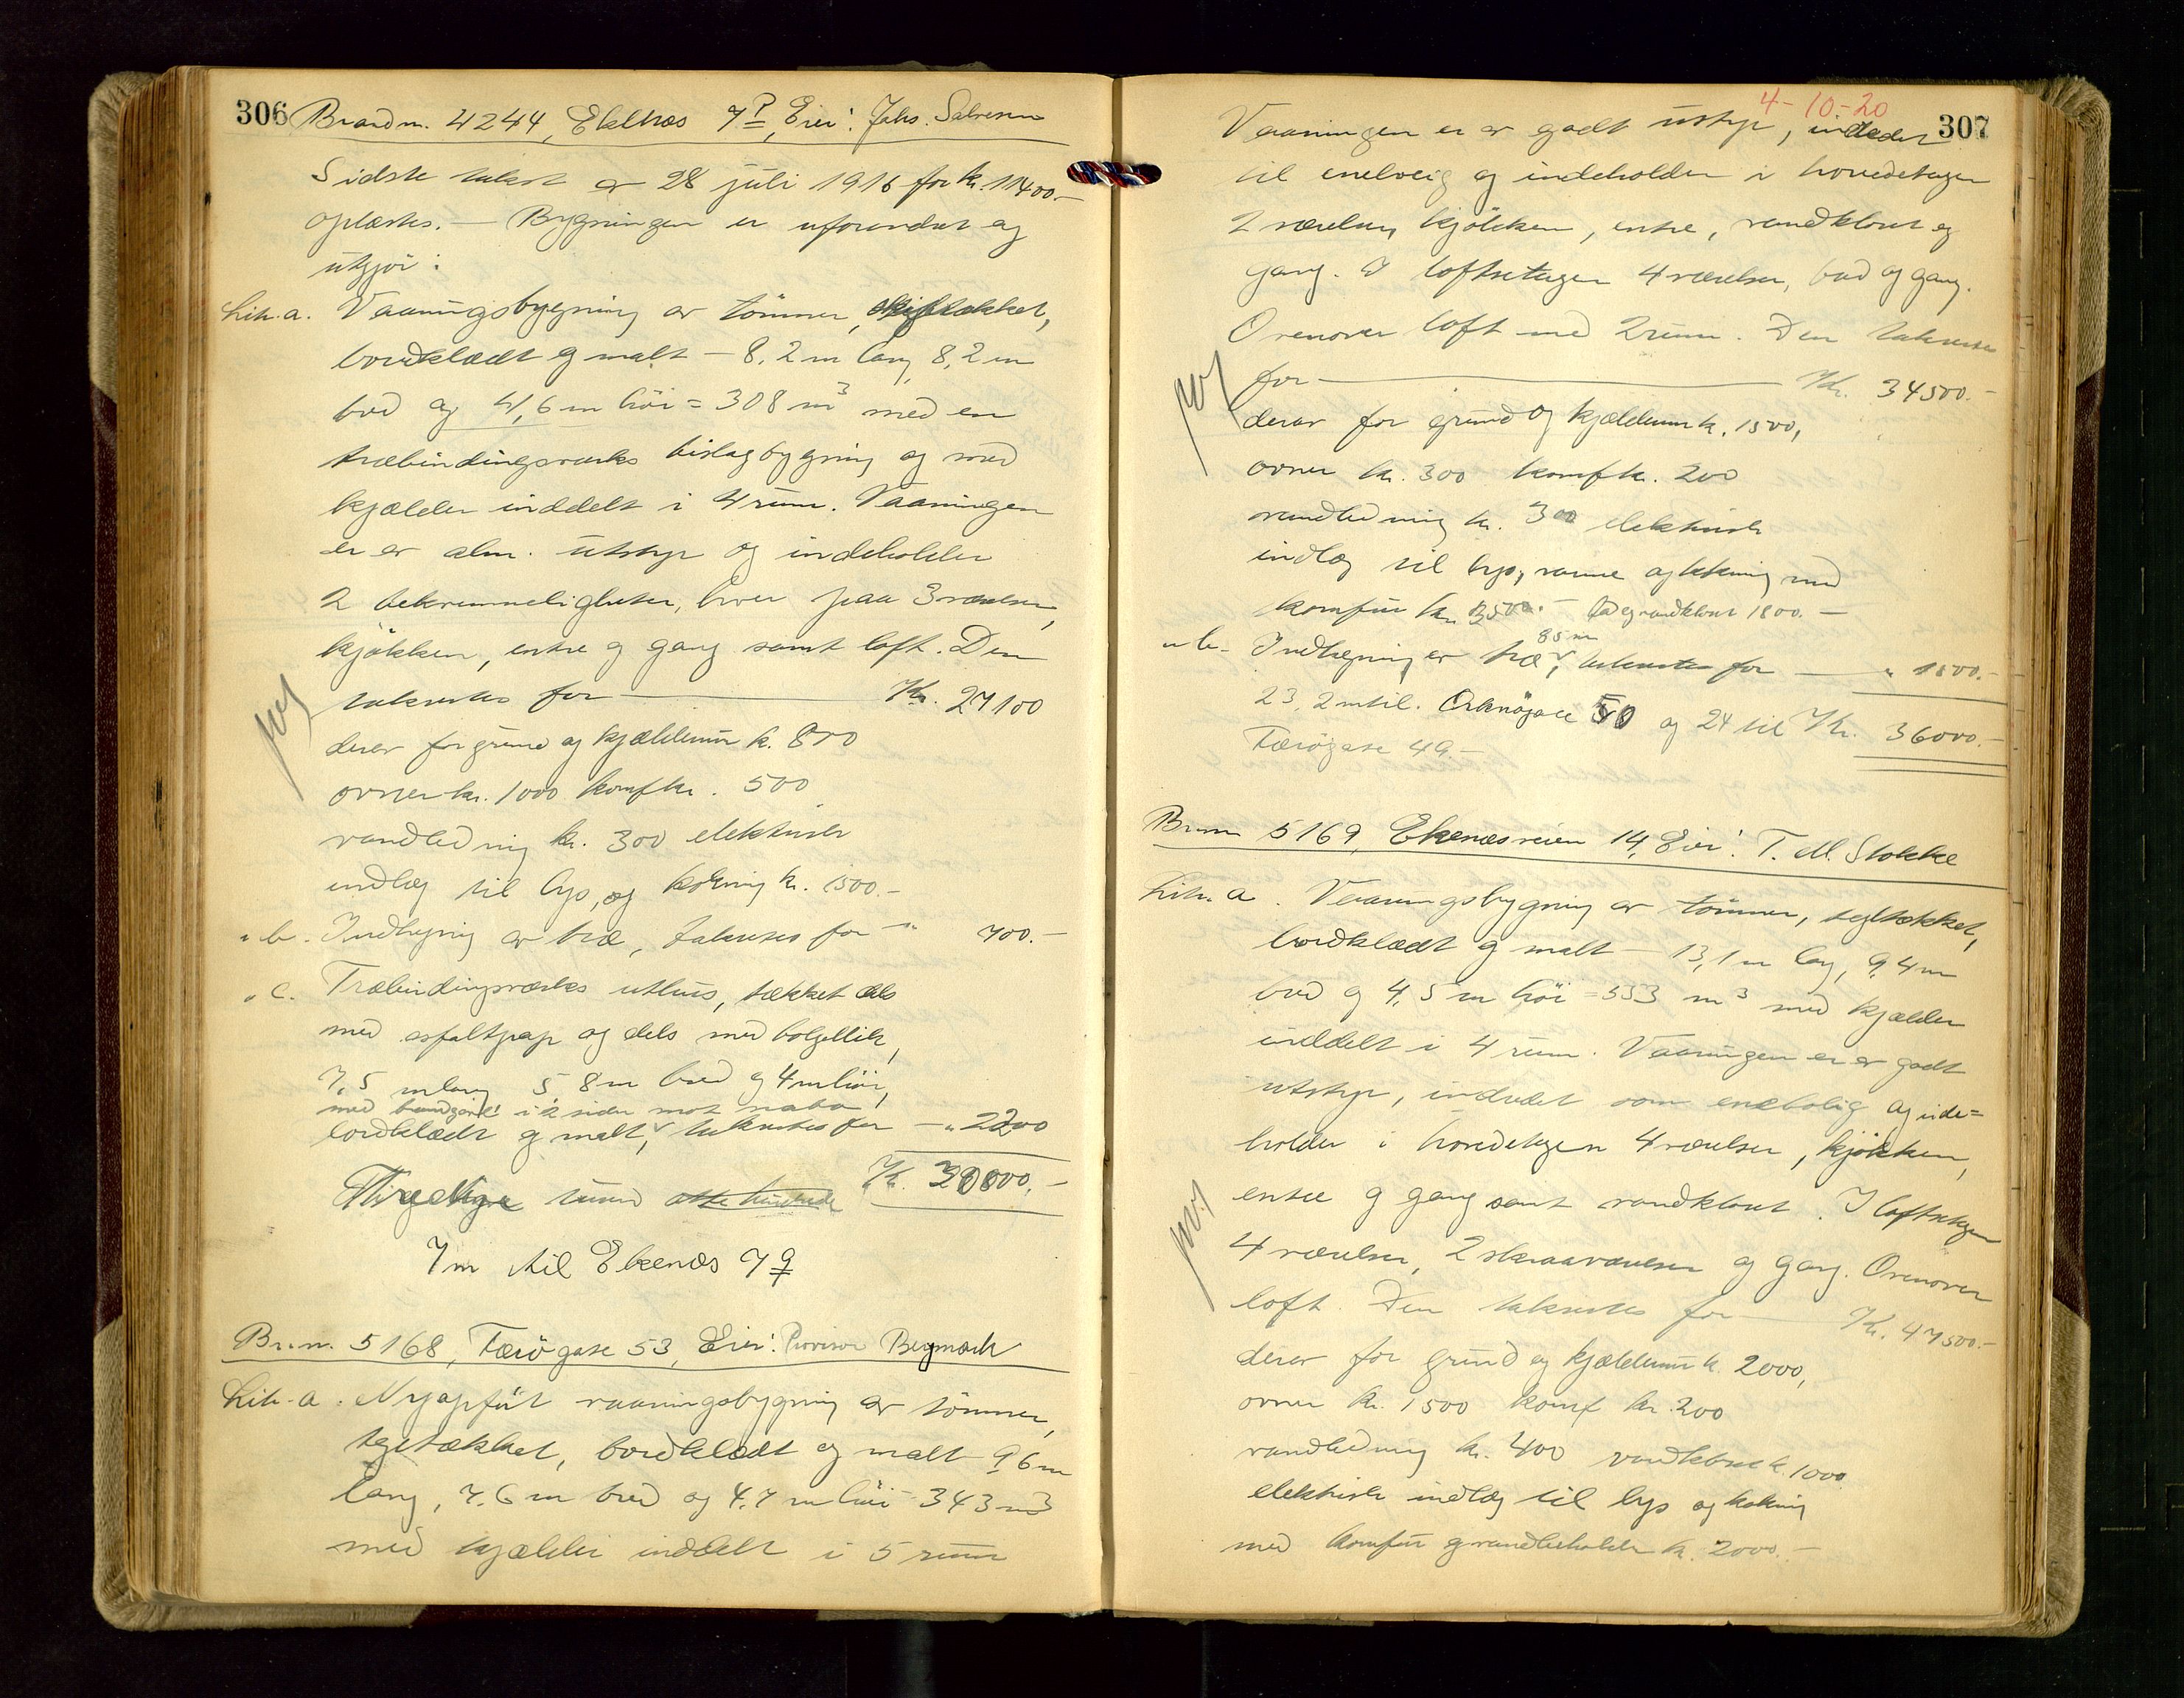 306 Brandn. 4244, Ekenæs 7P, Eier: Johs. Salvesen
Sidste takst er 28 juli 1916 for kr. 11400.-
oplæstes. — Bygningen er uforandret og
utgjør:
Litr. a. Vaaningsbygning av tømmer, skiftækket,
bordklædt og malt - 8,2 m lang 8,2 m
bred og 4,6 m høi = 308 m³ med en
træbindingsværks bislagbygning og med
kjælder inddelt i 4 rum. Vaaningen
er av alm. utstyr og indeholder
2 bekvemmeligheter, hver paa 3 værelser,
kjøkken, entre og gang samt loft. Den
takseres for — Kr. 27100
derav for grund og kjældermur k. 800
ovner kr. 1000 komf kr. 500
vandledning kr. 300 elektrisk
indlæg til lys, og kokning kr. 1500.-
" b. Indhegning av træ, takseres for — " 700.-
" c. Træbindingsværks uthus, tækket dels
med asfaltpap og dels med bølgeblik,
7,5 m lang 5 8 m bred og 4 m høi,
med brandgavl i 2 sider mot nabo
bordklædt og malt, takseres for — " 2200
Kr. 30000.-
Tredive tusen otte hundrede
7 m til Ekenæs 7 q
Br.n. 5168, Færøgate 53, Eier: Provisor Bergmark
Litr. a. Nyopført vaaningsbygning av tømmer,
tegltækket, bordklædt og malt 9,6 m
lang, 7,6 m bred og 4,7 m høi = 343 m3
med kjælder inddelt i 5 rum
4-10-20
307
Vaaningen er av godt utstyr, indredet
til enebolig og indeholder i hovedetagen
2 værelser, kjøkken, entre, vandkloset og
gang. I loftsetagen 4 værelser, bad og gang.
Ovenover loft med 2 rum. Den takseres
for — Kr. 34500.-
derav for grund og kjældermur k. 1500,
ovner kr. 300 komf kr. 200
vandledning kr. 300 elektrisk
indlæg til lys, varme og kokning med
komfur kr. 3500.- bad og vandklosett 1800.-
85 m
" b. Indhegning av træ, takseres for — " 1500.-
23,2 m til Orknøgate 50 og 24 til Kr. 36000.-
Færøgate 49.-
Br.nr 5169, Ekenæsveien 14, Eier: T. M. Stokke
Litr. a. Vaaningsbygning av tømmer, tegltækket,
bordklædt og malt - 13,1 m lang, 9,4 m
bred og 4,5 m høi = 553 m3 med kjælder
inddelt i 4 rum. Vaaningen er av godt
utstyr, indredet som enebolig og inde=
holder i hovedetagen 4 værelser, kjøkken,
entre og gang samt vandkloset. I loftsetagen
4 værelser, 2 skraaværelser og gang. Ovenover
loft. Den takseres for — Kr. 47500.-
derav for grund og kjældermur k. 2000,
ovner kr. 1500 komf kr. 200
vandledning kr. 400 vandkloset k. 1000
elektrisk indlæg til lys og kokning
med komfur og vandbeholder k. 2000.-